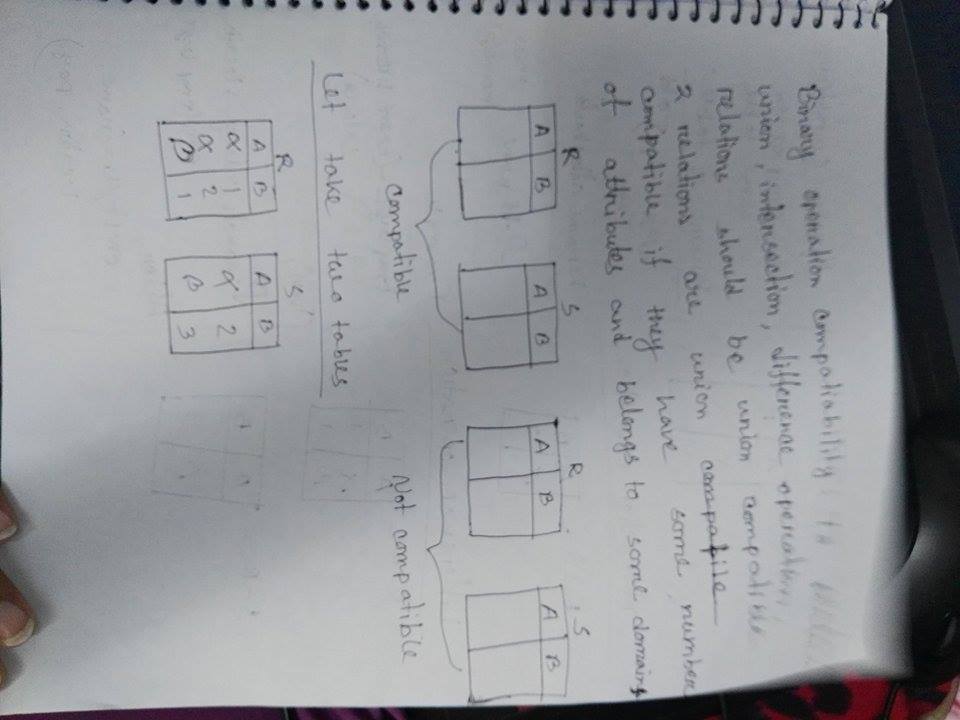 Binary operation compatiability to
union, intersection, difference operations
relations should be union compatible
2 relations are union compatile
compatible if they have some number
of attributes and belongs to some domains
R S R S
A B A B A B A B
compatible Not compatible
Let take two tables
R S
A B A B
α 1 α 2
α 2 β 3
β 1